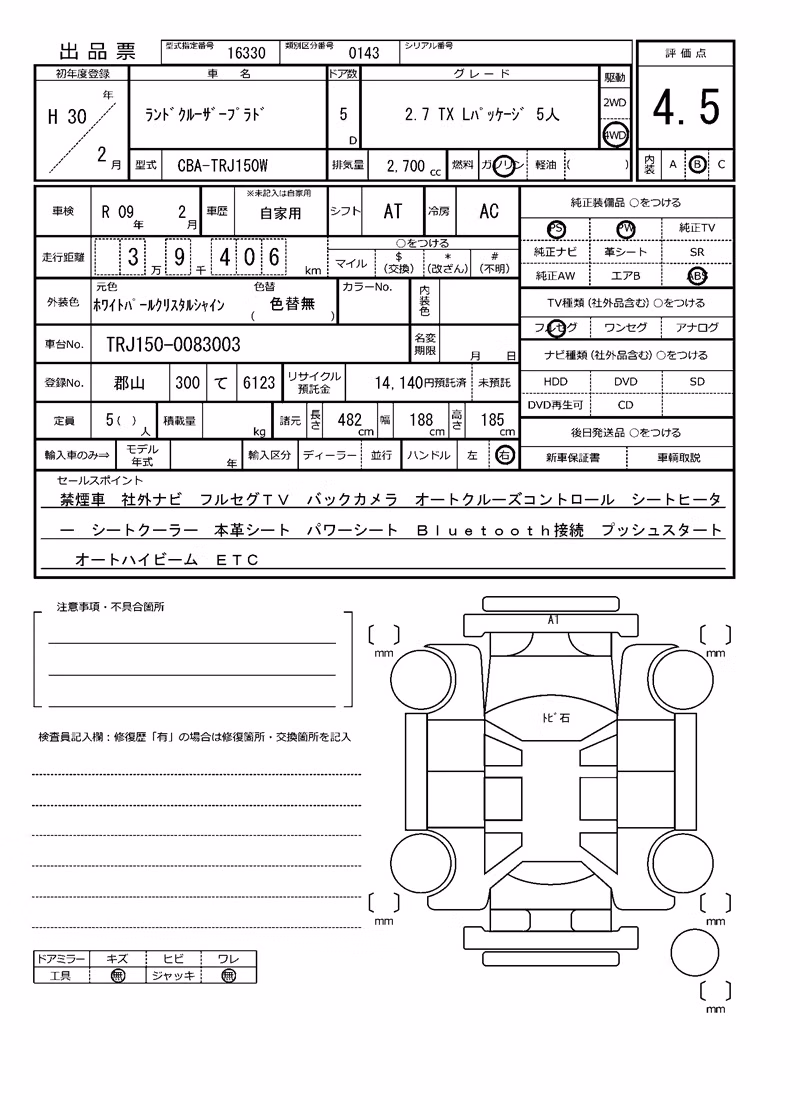 出品票 型式指定番号 16330 類別区分番号 0143 シリアル番号
評価点
4.5
内装 A B C
初年度登録 車名 ドア数 グレード 駆動
H 30 年 2 月 ﾗﾝﾄﾞｸﾙｰｻﾞｰﾌﾟﾗﾄﾞ 5 D 2.7 TX Lﾊﾟｯｹｰｼﾞ 5人 2WD
4WD
型式 CBA-TRJ150W 排気量 2,700 cc 燃料 ガソリン 軽油 ( )
車検 R 09 年 2 月 車歴 ※未記入は自家用 自家用 シフト AT 冷房 AC
走行距離 3 万 9 千 4 0 6 km
○をつける
マイル $(交換) *(改ざん) #(不明)
外装色 元色 ﾎﾜｲﾄﾊﾟｰﾙｸﾘｽﾀﾙｼｬｲﾝ 色替 ( 色替無 ) カラーNo. 内装色
車台No. TRJ150-0083003 名変期限 月 日
登録No. 郡山 300 て 6123 リサイクル預託金 14,140円預託済 未預託
定員 5( ) 人 積載量 kg 諸元 長さ 482 cm 幅 188 cm 高さ 185 cm
輸入車のみ⇒ モデル年式 年 輸入区分 ディーラー 並行 ハンドル 左 右
純正装備品 ○をつける
PS PW 純正TV
純正ナビ 革シート SR
純正AW エアB ABS
TV種類(社外品含む)○をつける
フルセグ ワンセグ アナログ
ナビ種類(社外品含む)○をつける
HDD DVD SD
DVD再生可 CD
後日発送品 ○をつける
新車保証書 車輌取説
セールスポイント
禁煙車 社外ナビ フルセグTV バックカメラ オートクルーズコントロール シートヒータ
ー シートクーラー 本革シート パワーシート Bluetooth接続 プッシュスタート
オートハイビーム ETC
注意事項・不具合箇所
検査員記入欄：修復歴「有」の場合は修復箇所・交換箇所を記入
A1
mm mm
ﾄﾋﾞ石
mm mm
mm
ドアミラー キズ ヒビ ワレ
工具 無 ジャッキ 無